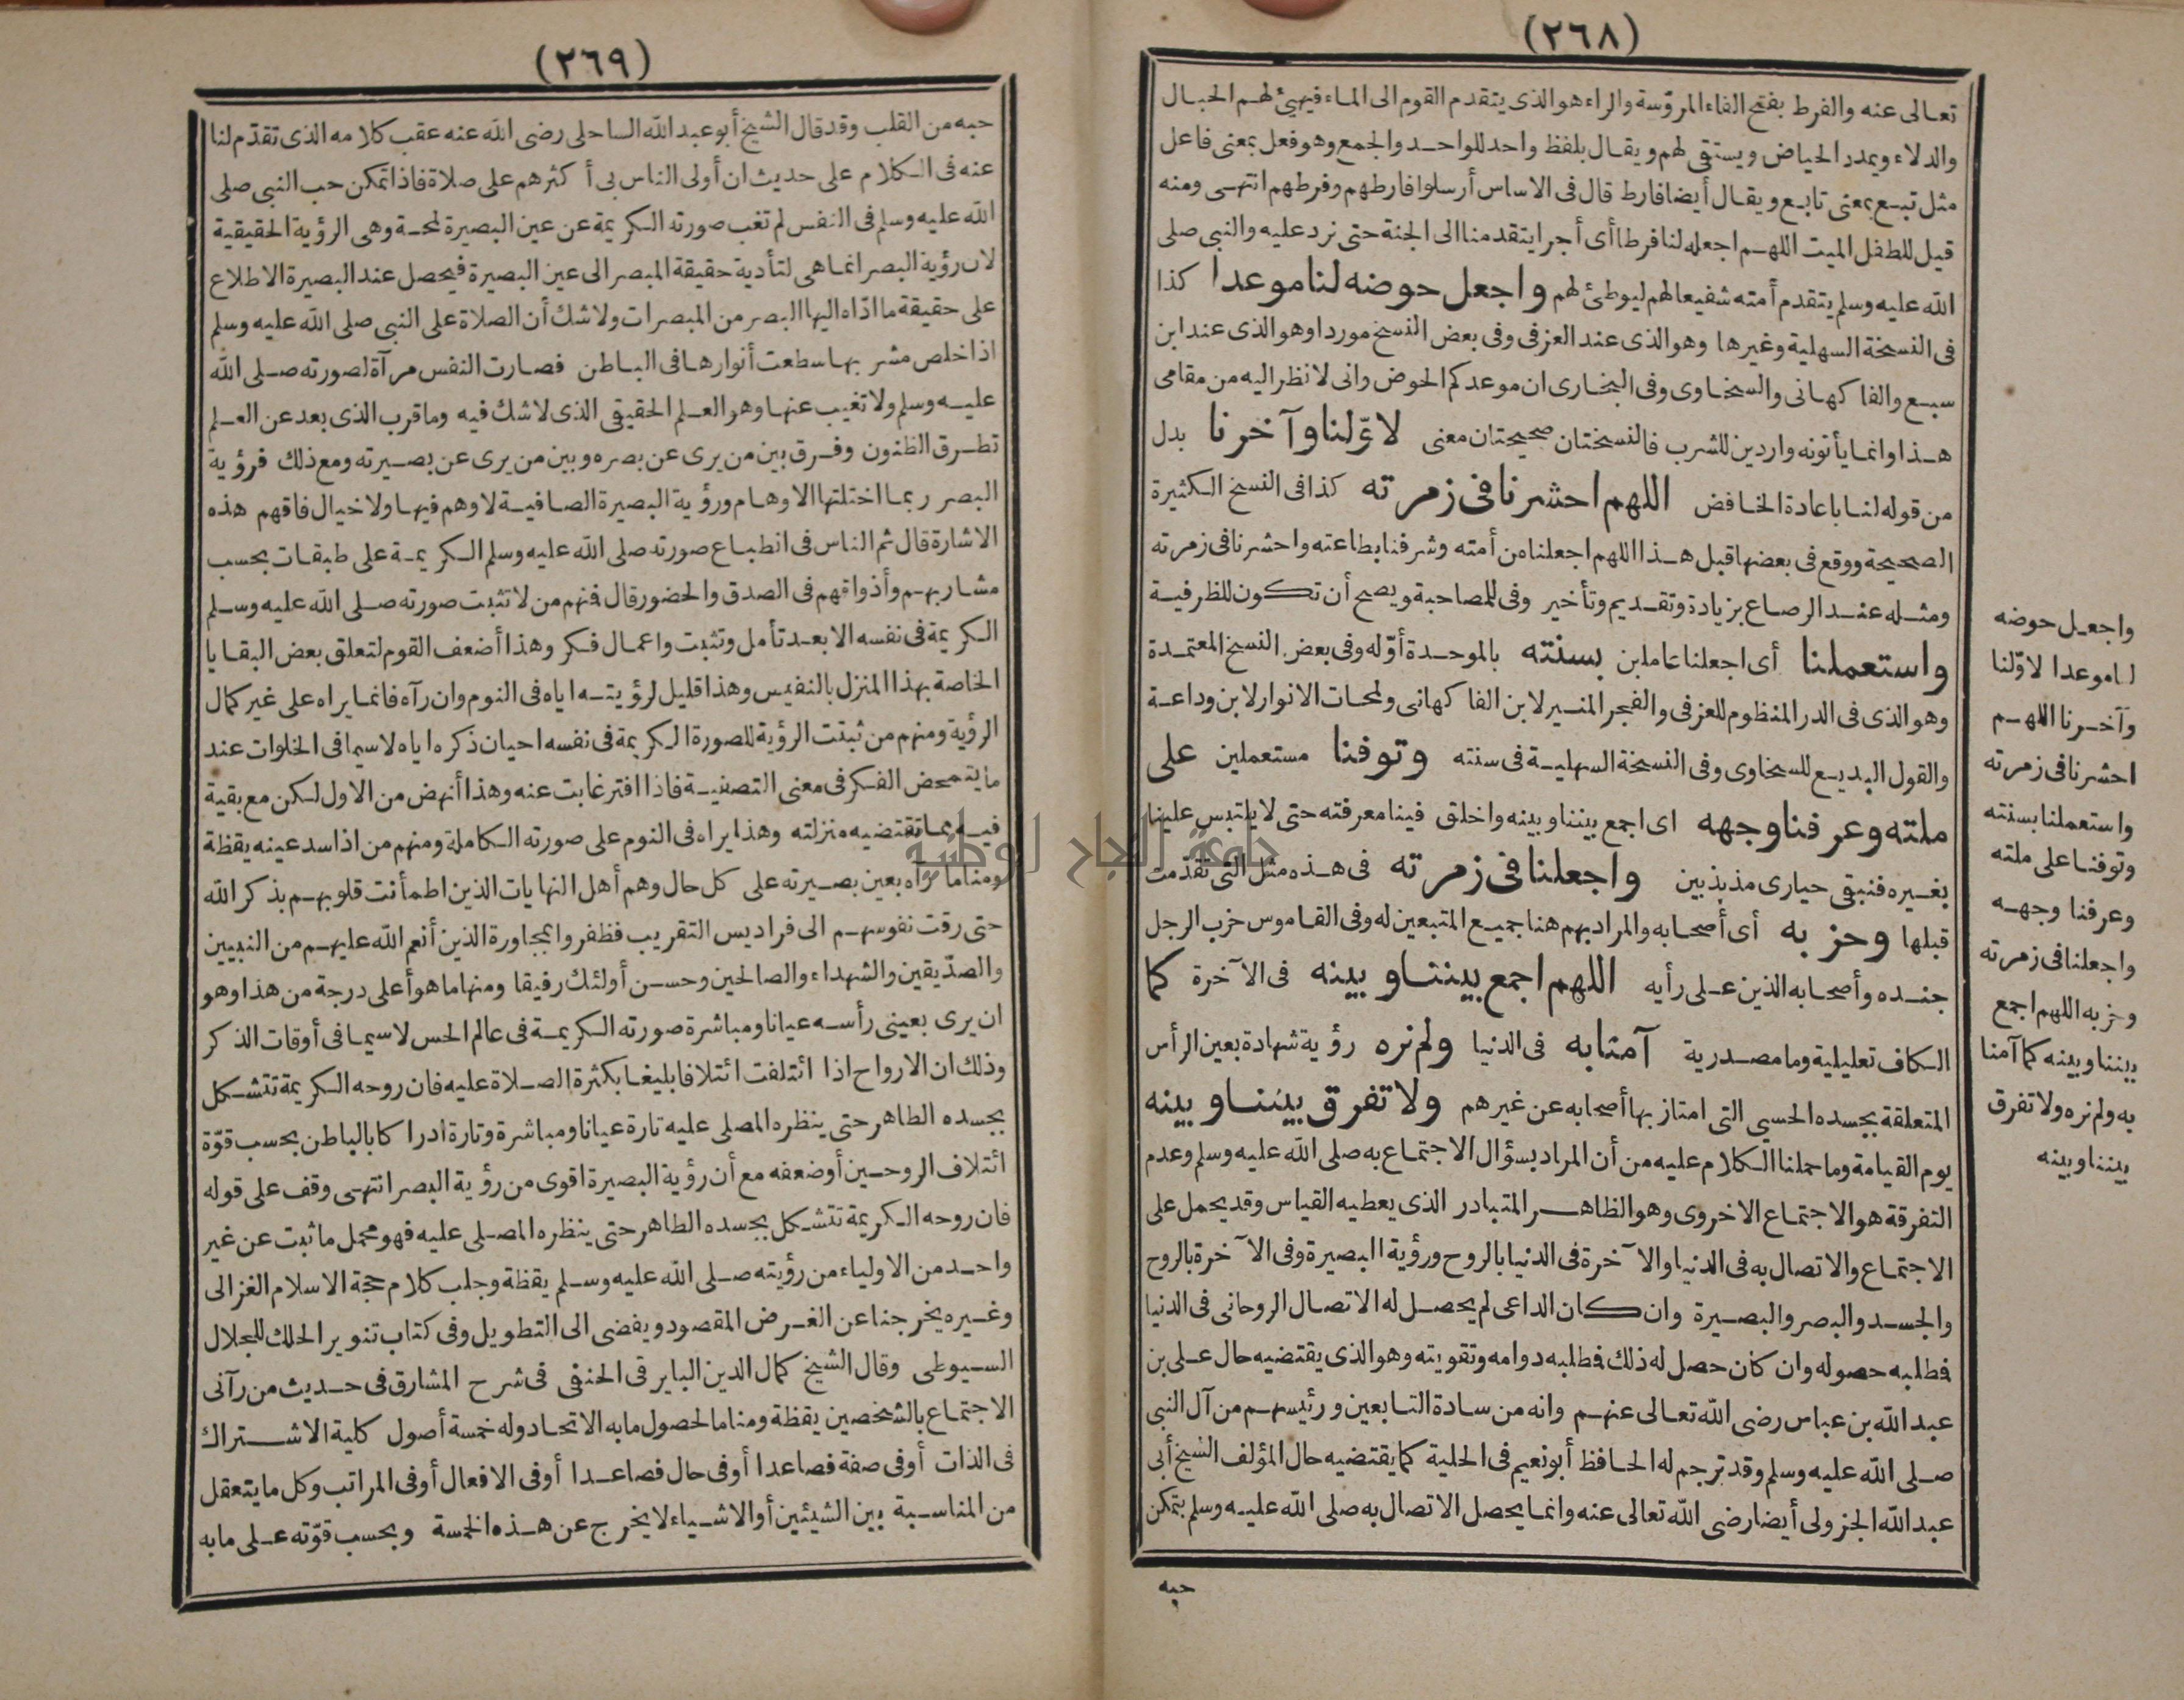 (٢٦٨)
تعالى عنه والفرط بفتح الفاء المروّسة والراء هو الذى يتقدم القوم الى الماء فيهيئ لهم الحبال
والدلاء ويمدر الحياض ويستقى لهم ويقال بلفظ واحد للواحد والجمع وهو فعل بمعنى فاعل
مثل تبع بمعنى تابع ويقال أيضا فارط قال فى الاساس أرسلوا فارطهم وفرطهم انتهى ومنه
قيل للطفل الميت اللهم اجعله لنا فرطا أى أجرا يتقدمنا الى الجنة حتى نرد عليه والنبى صلى
الله عليه وسلم يتقدم أمته شفيعا لهم ليوطئ لهم واجعل حوضه لنا موعدا كذا
فى النسخة السهلية وغيرها وهو الذى عند العزفى وفى بعض النسخ موردا وهو الذى عند ابن
سبع والفاكهانى والسخاوى وفى البخارى ان موعدكم الحوض وانى لانظر اليه من مقامى
هذا وانما يأتونه واردين للشرب فالنسختان صحيحتان معنى لاوّلنا وآخرنا بدل
من قوله لنا باعادة الخافض اللهم احشرنا فى زمرته كذا فى النسخ الكثيرة
الصحيحة ووقع فى بعضها قبل هذا اللهم اجعلنا من أمته وشرفنا بطاعته واحشرنا فى زمرته
ومثله عند الرصاع بزيادة وتقديم وتأخير وفى للمصاحبة ويصح أن تكون للظرفية
واستعملنا أى اجعلنا عاملين بسنته بالموحدة أوّله وفى بعض النسخ المعتمدة
وهو الذى فى الدر المنظوم للعزفى والفجر المنير لابن الفاكهانى ولمحات الانوار لابن وداعة
والقول البديع للسخاوى وفى النسخة السهلية فى سنته وتوفنا مستعملين على
ملته وعرفنا وجهه اى اجمع بيننا وبينه واخلق فينا معرفته حتى لا يلتبس علينا
بغيره فنبقى حيارى مذبذبين واجعلنا فى زمرته فى هذه مثل التى تقدّمت
قبلها وحزبه أى أصحابه والمراد بهم هنا جميع المتبعين له وفى القاموس حزب الرجل
جنده وأصحابه الذين على رأيه اللهم اجمع بيننا وبينه فى الآخرة كما
الكاف تعليلية وما مصدرية آمنا به فى الدنيا ولم نره رؤية شهادة بعين الرأس
المتعلقة بجسده الحسى التى امتاز بها أصحابه عن غيرهم ولا تفرق بيننا وبينه
يوم القيامة وما حملنا الكلام عليه من أن المراد بسؤال الاجتماع به صلى الله عليه وسلم وعدم
التفرقة هو الاجتماع الاخروى وهو الظاهر المتبادر الذى يعطيه القياس وقد يحمل على
الاجتماع والاتصال به فى الدنيا والآخرة فى الدنيا بالروح ورؤية البصيرة وفى الآخرة بالروح
والجسد والبصر والبصيرة وان كان الداعى لم يحصل له الاتصال الروحانى فى الدنيا
فطلبه حصوله وان كان حصل له ذلك فطلبه دوامه وتقويته وهو الذى يقتضيه حال على بن
عبد الله بن عباس رضى الله تعالى عنهم وانه من سادة التابعين ورئيسهم من آل النبى
صلى الله عليه وسلم وقد ترجم له الحافظ أبو نعيم فى الحلية كما يقتضيه حال المؤلف الشيخ أبى
عبد الله الجزولى أيضا رضى الله تعالى عنه وانما يحصل الاتصال به صلى الله عليه وسلم بتمكن
حبه
واجعل حوضه
لنا موعدا لاوّلنا
وآخرنا اللهم
احشرنا فى زمرته
واستعملنا بسنته
وتوفنا على ملته
وعرفنا وجهه
واجعلنا فى زمرته
وحزبه اللهم اجمع
بيننا وبينه كما آمنا
به ولم نره ولا تفرق
بيننا وبينه
(٢٦٩)
حبه من القلب وقد قال الشيخ أبو عبد الله الساحلى رضى الله عنه عقب كلامه الذى تقدّم لنا
عنه فى الكلام على حديث ان أولى الناس بى أكثرهم على صلاة فاذا تمكن حب النبى صلى
الله عليه وسلم فى النفس لم تغب صورته الكريمة عن عين البصيرة لمحة وهى الرؤية الحقيقية
لان رؤية البصر انما هى لتأدية حقيقة المبصر الى عين البصيرة فيحصل عند البصيرة الاطلاع
على حقيقة ما ادّاه اليها البصر من المبصرات ولا شك أن الصلاة على النبى صلى الله عليه وسلم
اذا خلص مشربها سطعت أنوارها فى الباطن فصارت النفس مرآة لصورته صلى الله
عليه وسلم ولا تغيب عنها وهو العلم الحقيقى الذى لا شك فيه وما قرب الذى بعد عن العلم
تطرق الظنون وفرق بين من يرى عن بصره وبين من يرى عن بصيرته ومع ذلك فرؤية
البصر ربما اختلتها الاوهام ورؤية البصيرة الصافية لا وهم فيها ولا خيال فافهم هذه
الاشارة قال ثم الناس فى انطباع صورته صلى الله عليه وسلم الكريمة على طبقات بحسب
مشاربهم وأذواقهم فى الصدق والحضور قال فمنهم من لا تثبت صورته صلى الله عليه وسلم
الكريمة فى نفسه الا بعد تأمل وتثبت واعمال فكر وهذا أضعف القوم لتعلق بعض البقايا
الخاصة بهذا المنزل بالنفيس وهذا قليل لرؤيته اياه فى النوم وان رآه فانما يراه على غير كمال
الرؤية ومنهم من ثبتت الرؤية للصورة الكريمة فى نفسه احيان ذكره اياه لا سيما فى الخلوات عند
ما يتمحض الفكر فى معنى التصفية فاذا افتر غابت عنه وهذا أنهض من الاول لكن مع بقية
فيه بما تقتضيه منزلته وهذا يراه فى النوم على صورته الكاملة ومنهم من اذا سد عينه يقظة
ومناما رآه بعين بصيرته على كل حال وهم أهل النهايات الذين اطمأنت قلوبهم بذكر الله
حتى رقت نفوسهم الى فراديس التقريب فظفروا بمجاورة الذين أنعم الله عليهم من النبيين
والصدّيقين والشهداء والصالحين وحسن أولئك رفيقا ومنها ما هو أعلى درجة من هذا وهو
ان يرى بعينى رأسه عيانا ومباشرة صورته الكريمة فى عالم الحس لا سيما فى أوقات الذكر
وذلك ان الارواح اذا ائتلفت ائتلافا بليغا بكثرة الصلاة عليه فان روحه الكريمة تتشكل
بجسده الطاهر حتى ينظره المصلى عليه تارة عيانا ومباشرة وتارة ادراكا بالباطن بحسب قوّة
ائتلاف الروحين أو ضعفه مع أن رؤية البصيرة اقوى من رؤية البصر انتهى وقف على قوله
فان روحه الكريمة تتشكل بجسده الطاهر حتى ينظره المصلى عليه فهو محمل ما ثبت عن غير
واحد من الاولياء من رؤيته صلى الله عليه وسلم يقظة وجلب كلام حجة الاسلام الغزالى
وغيره يخرجنا عن الغرض المقصود ويفضى الى التطويل وفى كتاب تنوير الحلك للجلال
السيوطى وقال الشيخ كمال الدين البابرقى الحنفى فى شرح المشارق فى حديث من رآنى
الاجتماع بالشخصين يقظة ومناما لحصول ما به الاتحاد وله خمسة أصول كلية الاشتراك
فى الذات أو فى صفة فصاعدا أو فى حال فصاعدا أو فى الافعال أو فى المراتب وكل ما يتعقل
من المناسبة بين الشيئين أو الاشياء لا يخرج عن هذه الخمسة وبحسب قوّته على ما به
جامعة النجاح الوطنية